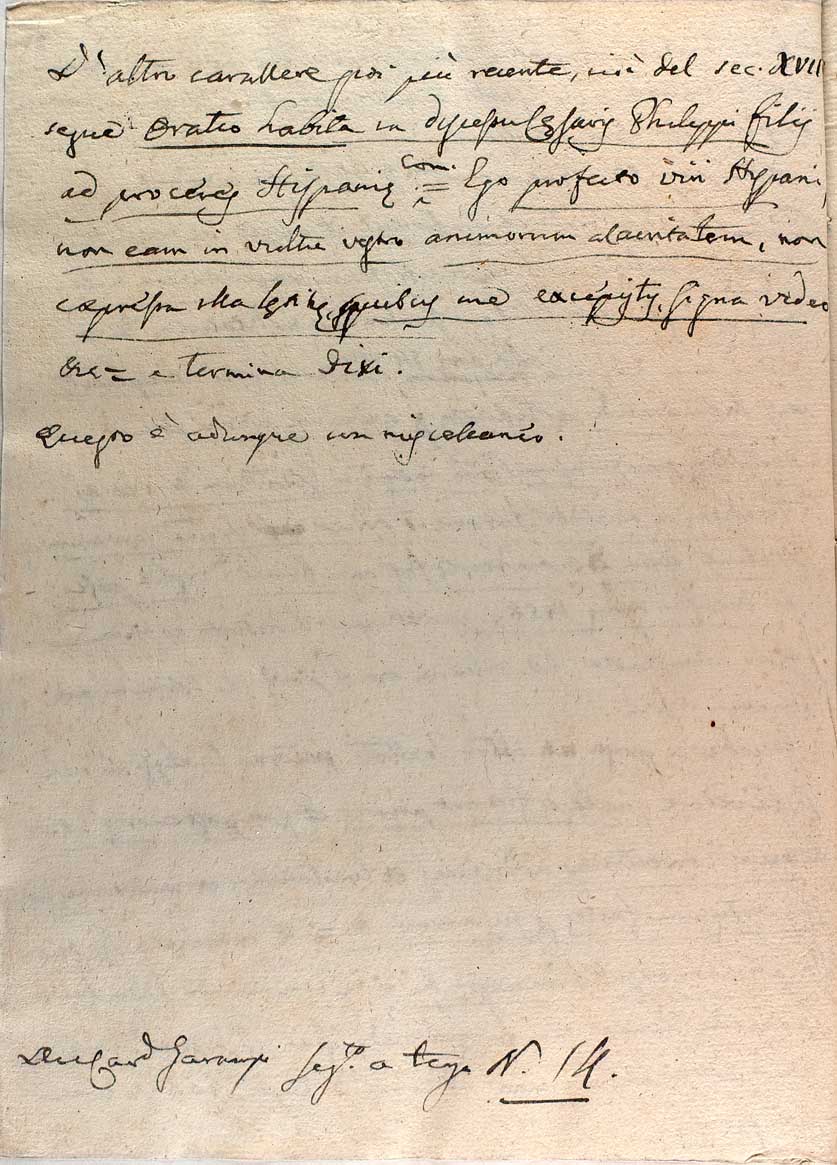 D'altro carattere poi più recente, cioè del sec. XVII
segue Oratio habita in Cesaris Philippi filij
ad proceres Hispanię Com. = Ego profecto viri Hispani,
non eam in vultu vestro animorum alacritatem, non
quibus me excepistis, signa video
= e termina Dixi.
Questo è adunque un miscelaneo.
Del Card Garampi seg.to a terga N. 14.